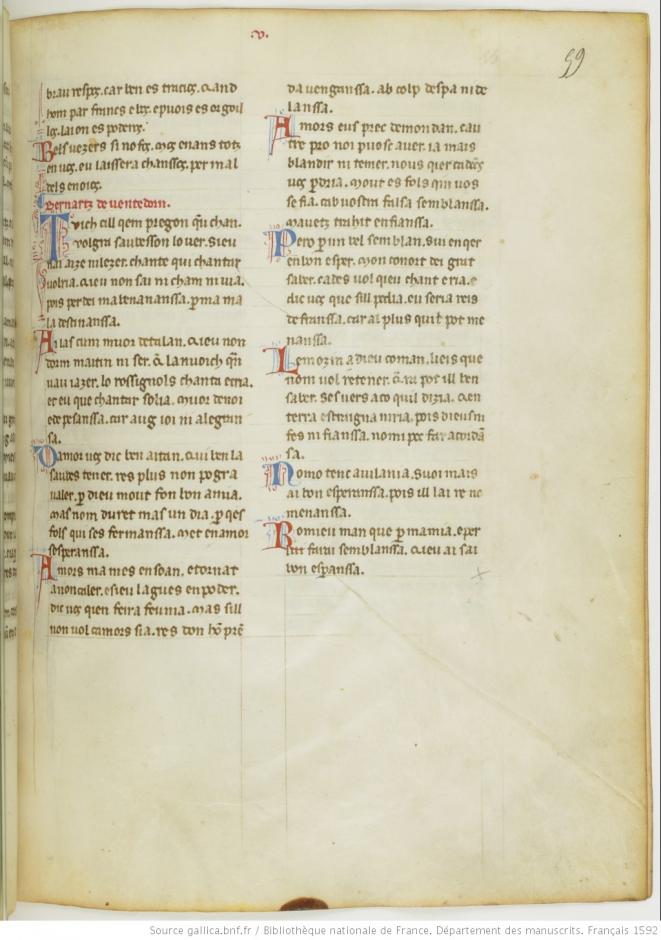 .v.
59
brau respoz. car ben es traciz. cand
hom par francs e lez. epuois es orgoil
loz. laion es poderoz.
Bels vezers si no foz. moz enans totz
en voz. eu laissera chanssoz. per mal
dels enoioz.
Bernartz de ventedorn.
Tuich cill qem pregon q̄u chan.
volgra saubesson lo ver. sieu
nai aize nilezer. chante qui chantar
volria. qieu non sai ni cham ni via.
pois perdei ma benanansa. p̄ ma ma
la destinanssa.
Ailas cum muor de talan. qieu non
dorm maitin ni ser. q̄ la nuoich q̄n
vau iazer. lo rossignols chanta ecria.
et eu que chantar solia. muor denoi
e de pesanssa. car aug ioi ni alegran
sa.
Damor voz dic ben aitan. qui ben la
saubes tener. res plus non pogra
valer. p̄ dieu mout fon bon amia.
mas nom duret mas un dia. p̄ qes
fols qui ses fermanssa. met en amor
sesperanssa.
Amors ma mes en soan. e tornat
a noncaler. e sieu lagues en poder.
dic voz qien feira feunia. mas sill
non vol camors sia. res don hō prē
da venganssa. ab colp despa ni de
lanssa.
Amors eus prec de mon dan. cau
tre pro noi puosc aver. ia mais
blandir ni temer. nous quer cadōc
voz p̄dria. mout es fols qui vos
se fia. cab vostra falsa semblanssa.
mavetz trahit en fianssa.
Pero p̄ un bel semblan. sui enqer
en bon esper. mon conort dei grat
saber. cades vol qieu chant e ria. e
dic voz que sill podia. eu seria reis
de franssa. car al plus quil pot me
nanssa.
Lemozin a dieu coman. lieis que
nom vol retener. q̄ra pot ill ben
saber. ses vers aco quil dizia. qen
terra estraigna niria. pois dieus ni
fes ni fianssa. nomi poc far acordā
sa.
Nomo tenc a vilania. suoi mais
ai bon esperanssa. pois ill lai re no
menanssa.
Romieu man que p̄ mamia. e per
lui farai semblanssa. qieu ai sai
bon esp̄anssa.
Source gallica.bnf.fr / Bibliothèque nationale de France. Département des manuscrits. Français 1592